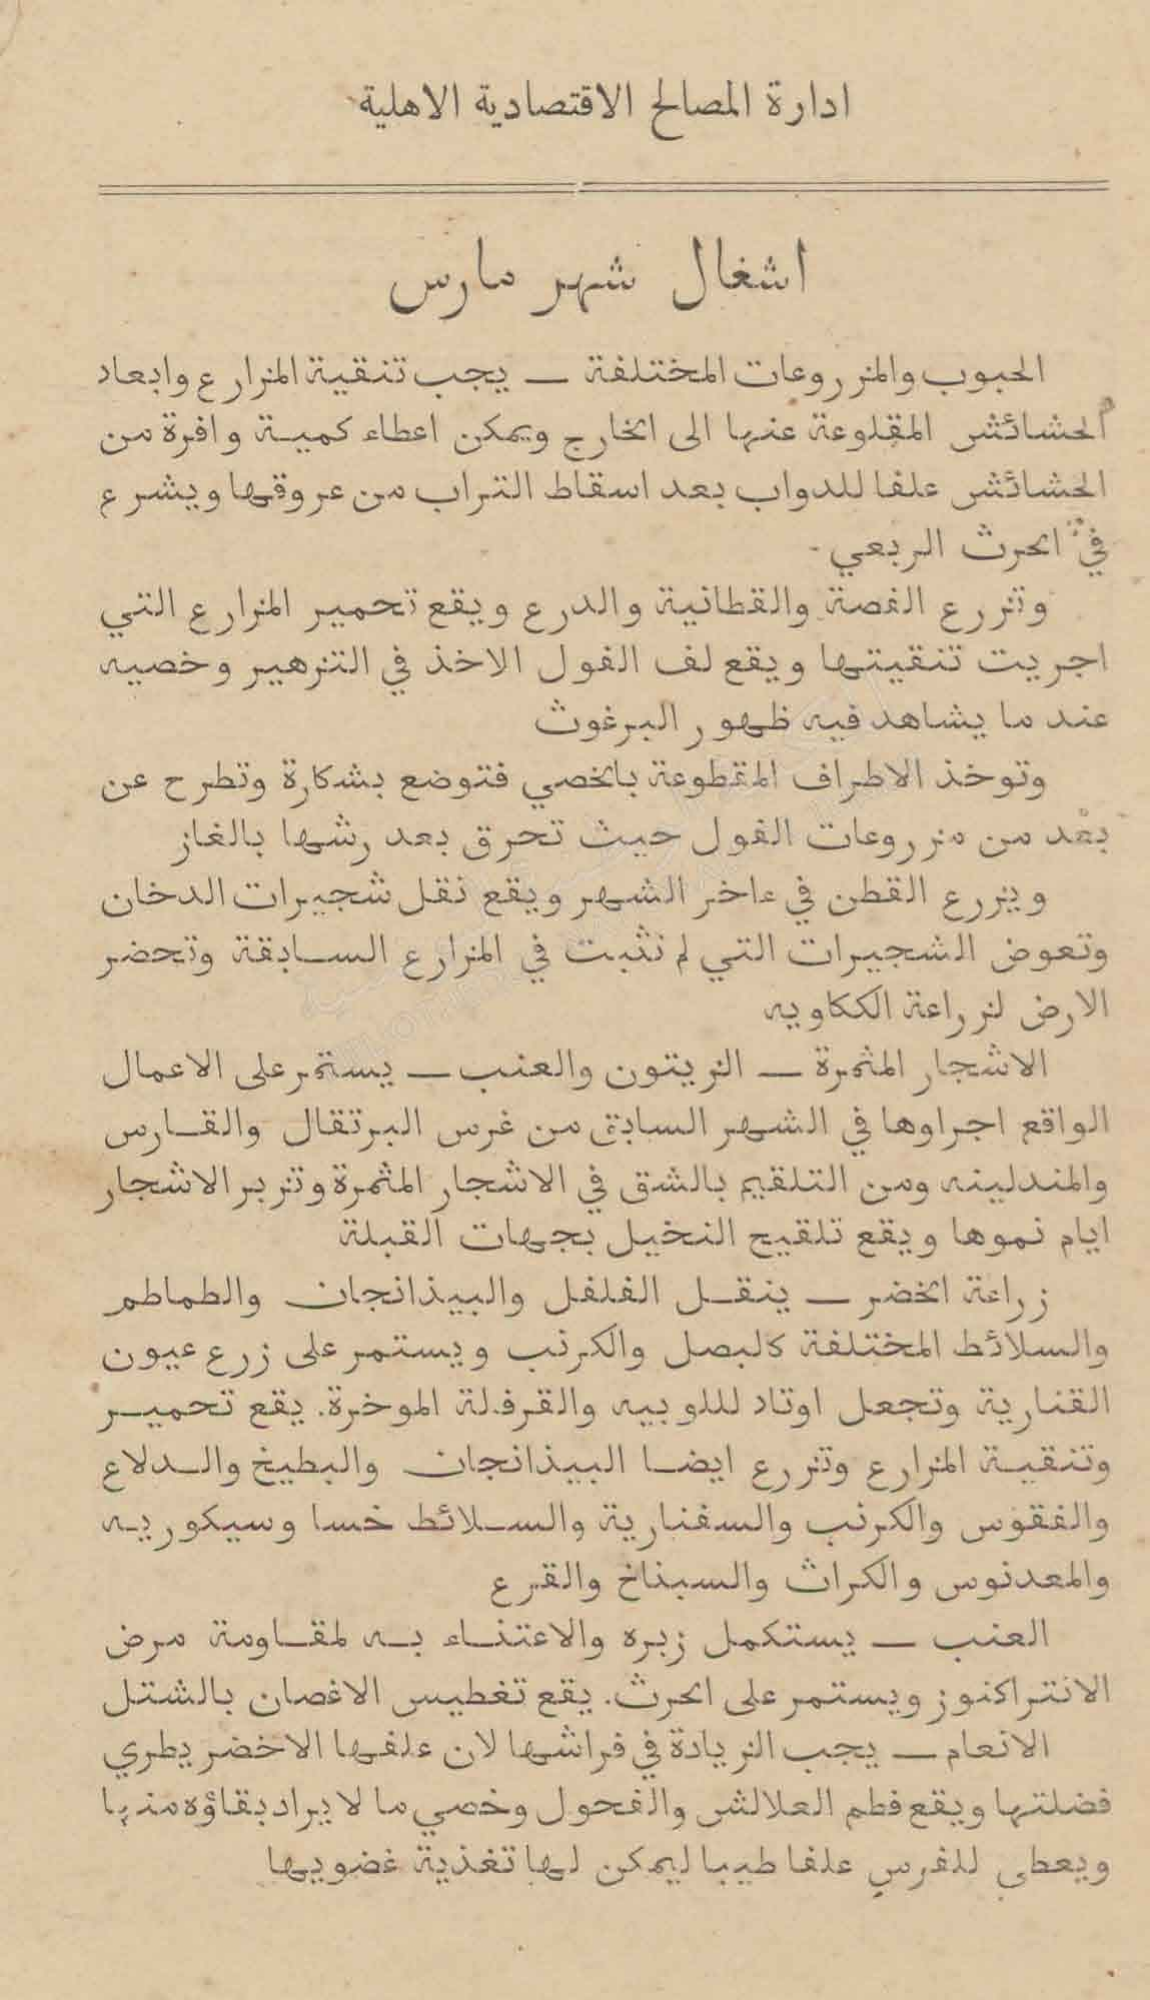 ادارة المصالح الاقتصادية الاهلية
اشغال شهر مارس
الحبوب والمزروعات المختلفة — يجب تنقية المزارع وابعاد
الحشائش المقلوعة عنها الى الخارج ويمكن اعطاء كمية وافرة من
الحشائش علفا للدواب بعد اسقاط التراب من عروقها ويشرع
في الحرث الربعي
وتزرع الفصة والقطانية والدرع ويقع تحمير المزارع التي
اجريت تنقيتها ويقع لف الفول الاخذ في التزهير وخصيه
عند ما يشاهد فيه ظهور البرغوث
وتوخذ الاطراف المقطوعة بالخصي فتوضع بشكارة وتطرح عن
بعد من مزروعات الفول حيث تحرق بعد رشها بالغاز
ويزرع القطن في ءاخر الشهر ويقع نقل شجيرات الدخان
وتعوض الشجيرات التي لم تثبت في المزارع السابقة وتحضر
الارض لزراعة الككاويه
الاشجار المثمرة — الزيتون والعنب — يستمر على الاعمال
الواقع اجراوها في الشهر السابق من غرس البرتقال والقارس
والمندلينه ومن التلقيم بالشق في الاشجار المثمرة وتزبر الاشجار
ايام نموها ويقع تلقيح النخيل بجهات القبلة
زراعة الخضر — ينقل الفلفل والبيذانجان والطماطم
والسلائط المختلفة كالبصل والكرنب ويستمر على زرع عيون
القنارية وتجعل اوتاد لللوبيه والقرفلة الموخرة. يقع تحمير
وتنقية المزارع وتزرع ايضا البيذانجان والبطيخ والدلاع
والفقوس والكرنب والسفنارية والسلائط خسا وسيكوريه
والمعدنوس والكراث والسبناخ والقرع
العنب — يستكمل زبره والاعتناء به لمقاومة مرض
الانتراكنوز ويستمر على الحرث. يقع تغطيس الاغصان بالشتل
الانعام — يجب الزيادة في فراشها لان علفها الاخضر يطري
فضلتها ويقع فطم العلالش والفحول وخصي ما لا يراد بقاؤه منها
ويعطى للفرس علفا طيبا ليمكن لها تغذية غضويها